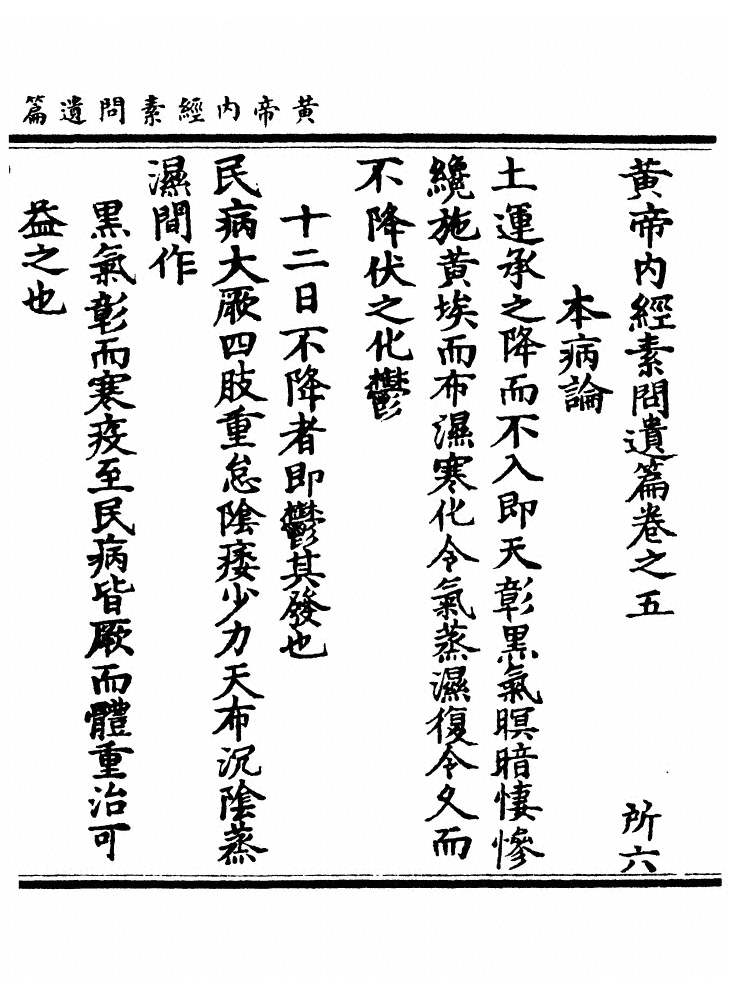 黃帝內經素問遺篇
黃帝內經素問遺篇卷之五 所六
本病論
土運承之降而不入即天彰黑氣暝暗悽慘
纔施黃埃而布濕寒化令氣蒸濕復令久而
不降伏之化鬱
十二日不降者即鬱其發也
民病大厥四肢重怠陰痿少力天布沉陰蒸
濕間作
黑氣彰而寒疫至民病皆厥而體重治可
益之也